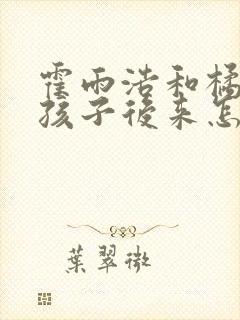 霍雨浩和橘
孩子後来怎
葉翠微